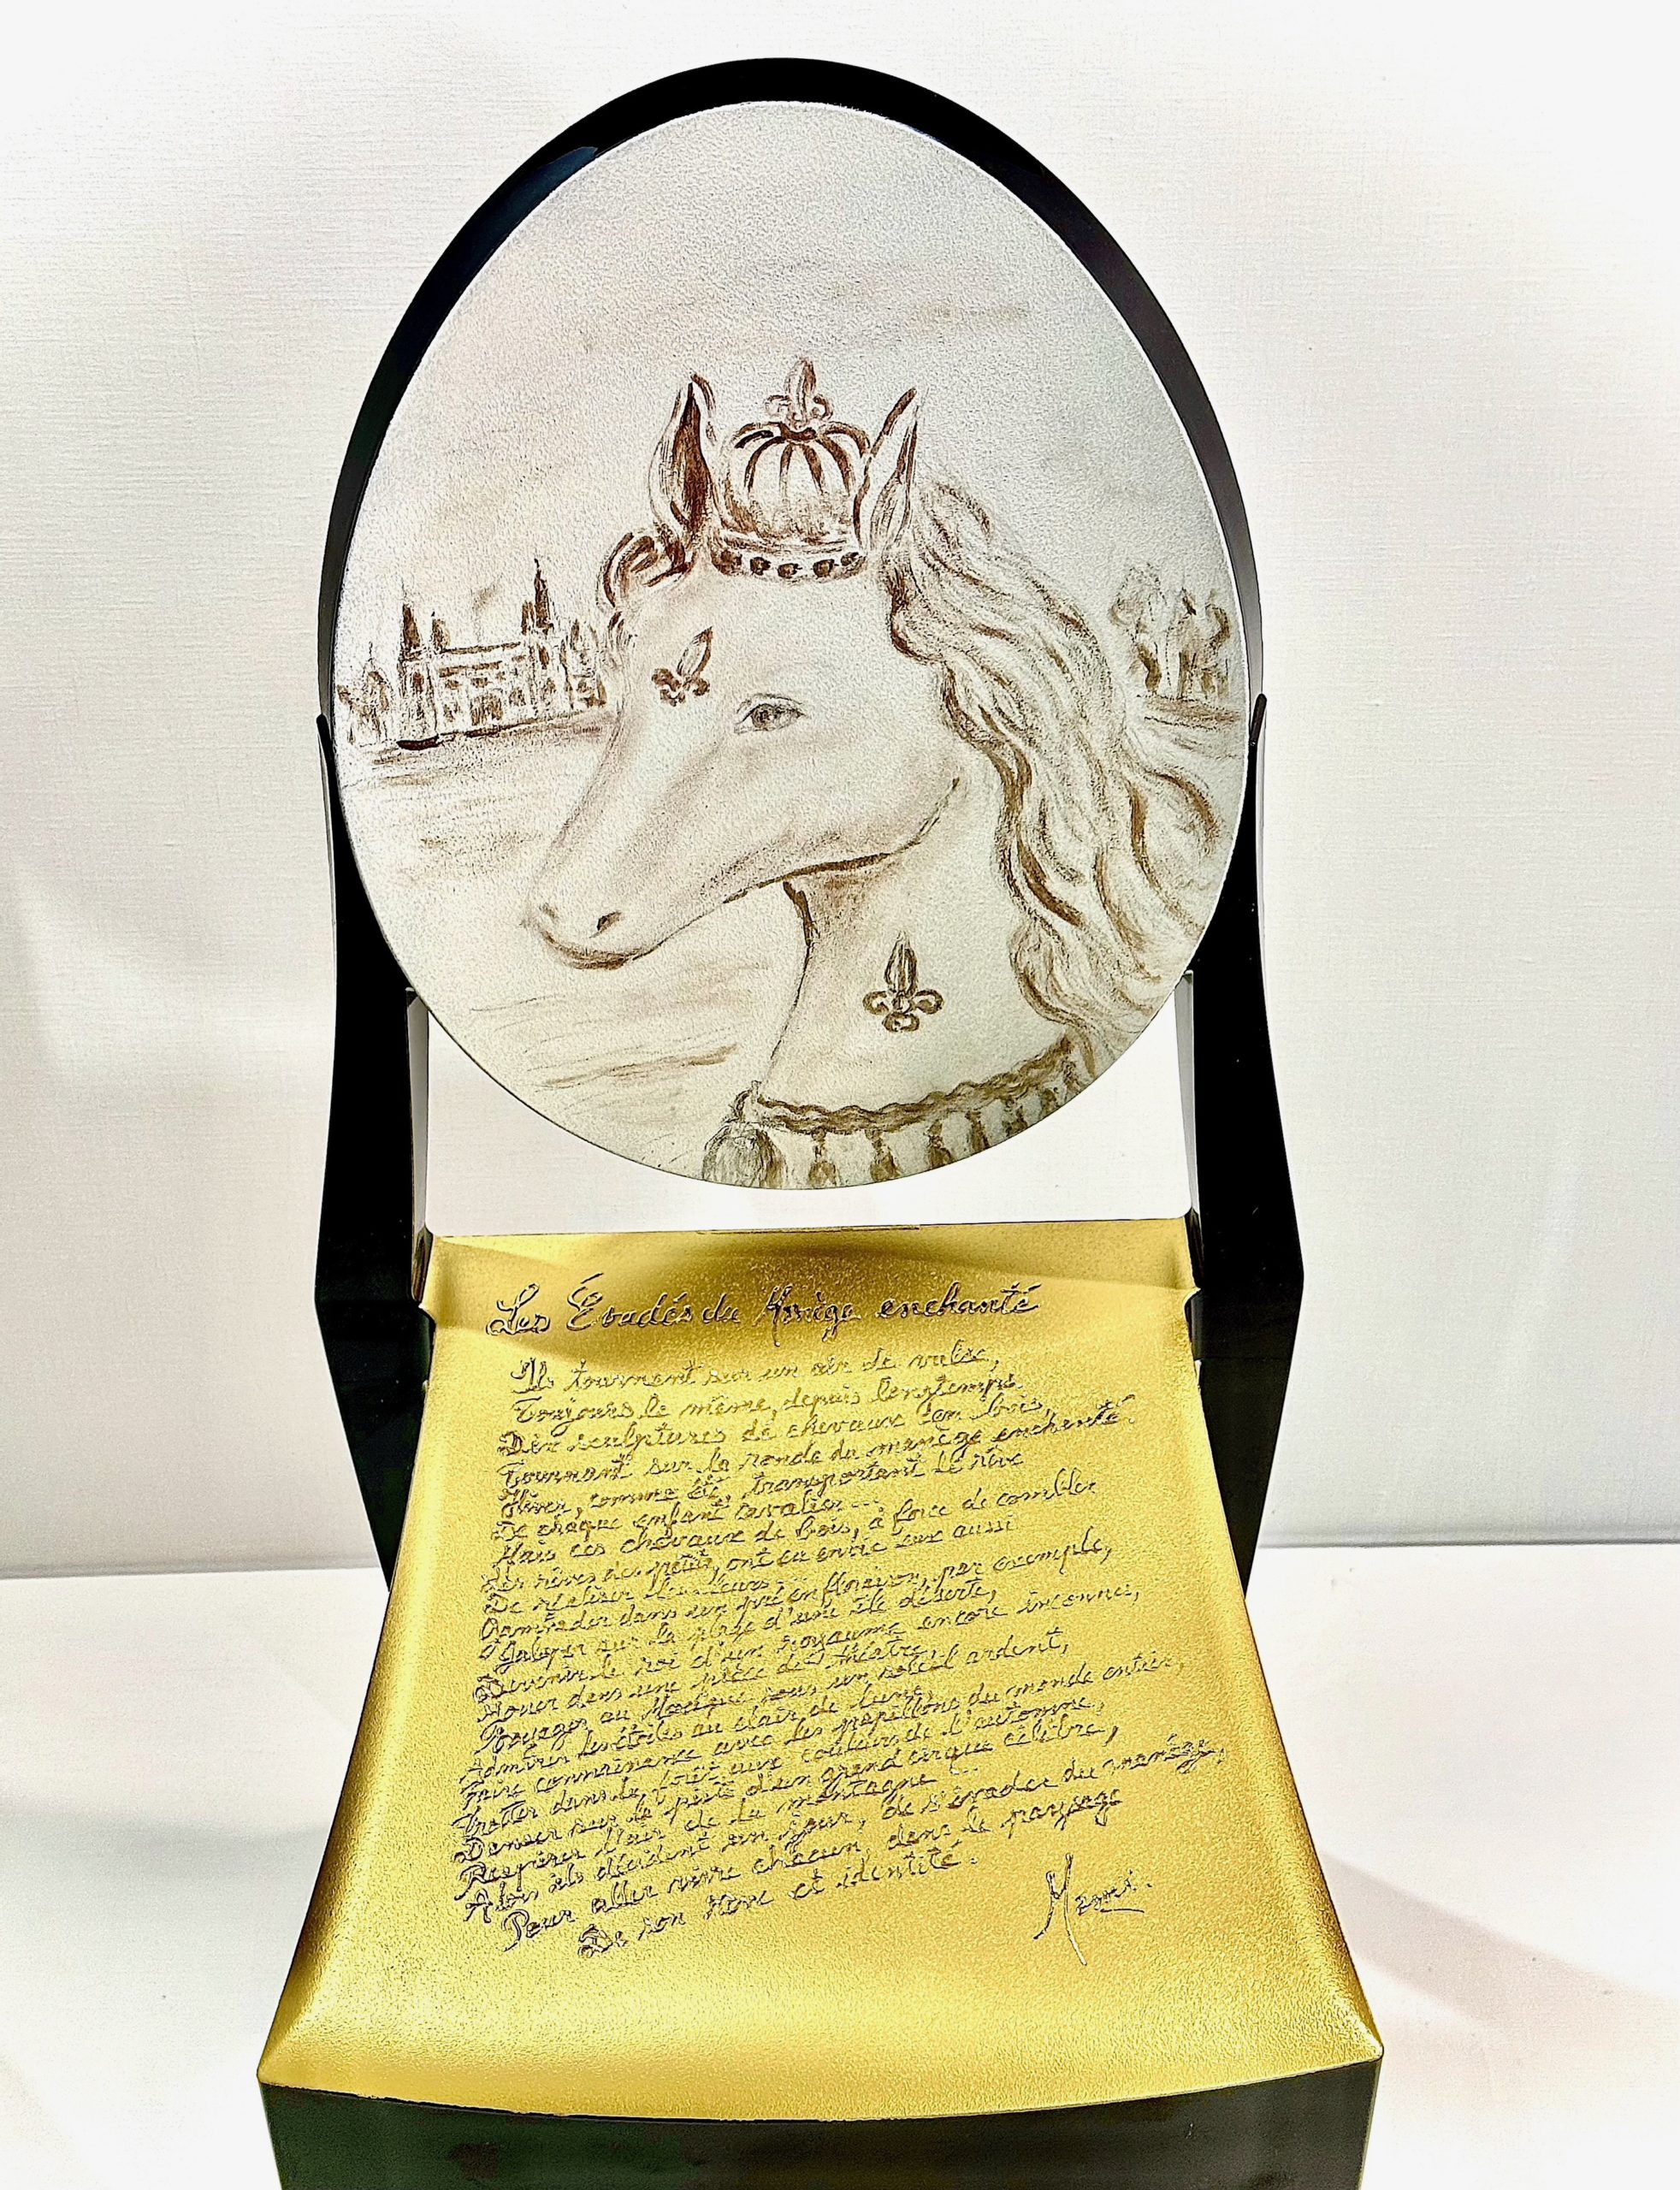 Les Évadés du Manège enchanté
Ils tournent sur un air de valse,
Toujours le même, depuis longtemps.
Dix sculptures de chevaux en bois,
Tournant sur la ronde du manège enchanté.
Hiver, comme été, transportant le rêve
De chaque enfant cavalier...
Mais ces chevaux de bois, à force de combler
les rêves des petits, ont eu envie eux aussi
De réaliser les leurs...
Gambader dans un pré en floraison, par exemple,
Galoper sur la plage d'une île déserte,
Devenir le roi d'un royaume encore inconnu,
Jouer dans une pièce de théâtre,
Voyager au Mexique sous un soleil ardent,
Admirer les étoiles au clair de lune,
Faire connaissance avec les papillons du monde entier,
Trotter dans la forêt aux couleurs de l'automne,
Danser sur la piste d'un grand cirque célèbre,
Respirer l'air de la montagne...
Alors ils décident un jour, de s'évader du manège,
Pour aller vivre chacun, dans le paysage
De son rêve et identité.